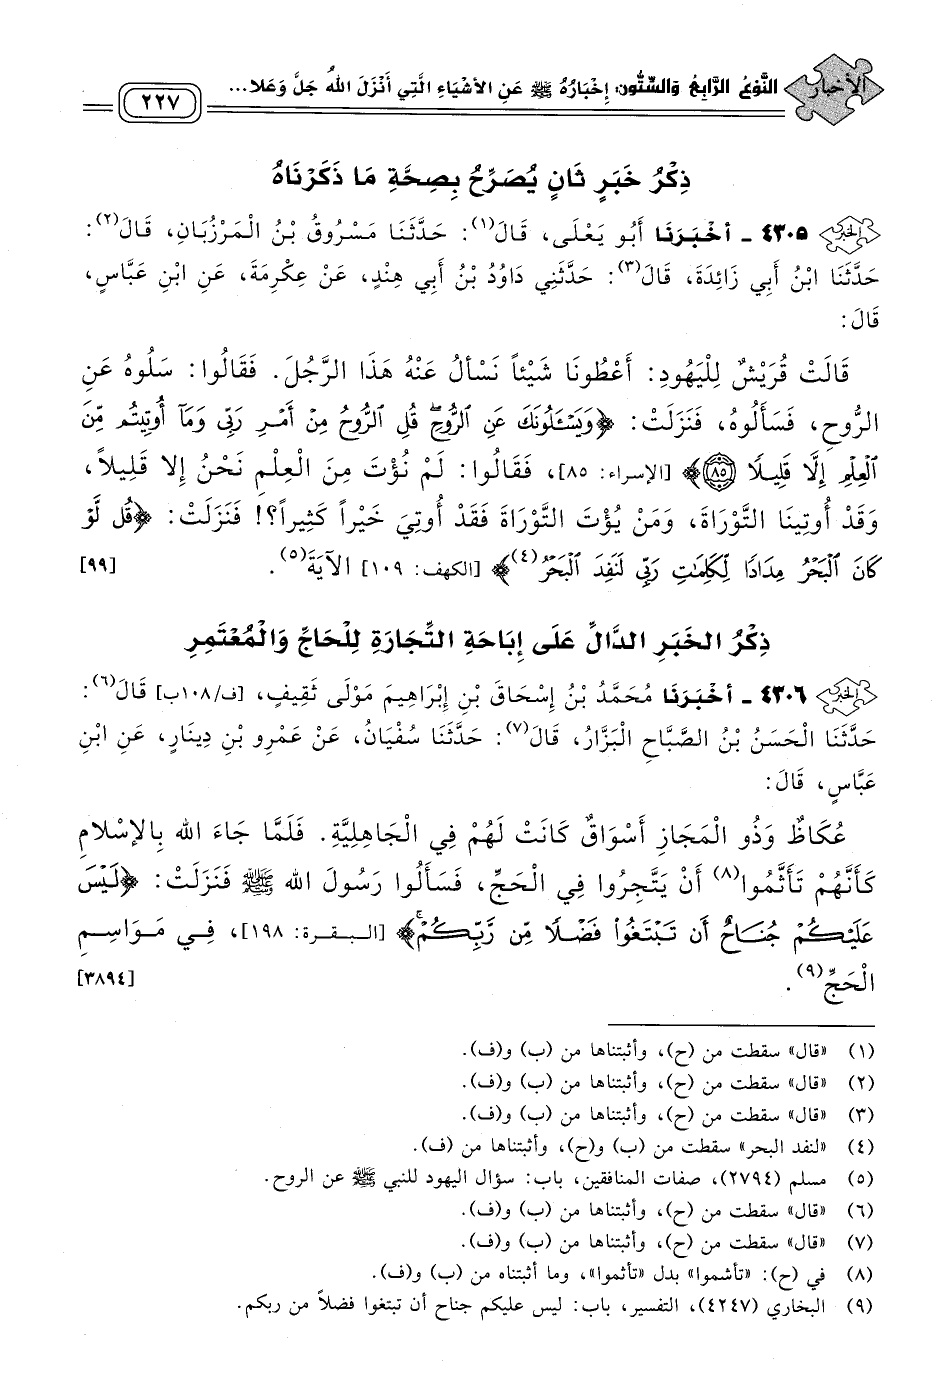 الأخبار النَّوْعُ الرَّابِعُ وَالسِّتُّونَ: إِخْبَارُهُ ﷺ عَنِ الأَشْيَاءِ الَّتِي أَنْزَلَ اللهُ جَلَّ وَعَلا... ٢٢٧
ذِكْرُ خَبَرٍ ثَانٍ يُصَرِّحُ بِصِحَّةِ مَا ذَكَرْنَاهُ
الخبر ٤٣٠٥ ـ أَخْبَرَنَا أَبُو يَعْلَى، قَالَ(١): حَدَّثَنَا مَسْرُوقُ بْنُ الْمَرْزُبَانِ، قَالَ(٢):
حَدَّثَنَا ابْنُ أَبِي زَائِدَةَ، قَالَ(٣): حَدَّثَنِي دَاوُدُ بْنُ أَبِي هِنْدٍ، عَنْ عِكْرِمَةَ، عَنِ ابْنِ عَبَّاسٍ،
قَالَ:
قَالَتْ قُرَيْشٌ لِلْيَهُودِ: أَعْطُونَا شَيْئاً نَسْأَلُ عَنْهُ هَذَا الرَّجُلَ. فَقَالُوا: سَلُوهُ عَنِ
الرُّوحِ، فَسَأَلُوهُ، فَنَزَلَتْ: ﴿وَيَسْـَٔلُونَكَ عَنِ ٱلرُّوحِ ۖ قُلِ ٱلرُّوحُ مِنْ أَمْرِ رَبِّي وَمَآ أُوتِيتُم مِّنَ
ٱلْعِلْمِ إِلَّا قَلِيلًا ٨٥﴾ [الإسراء: ٨٥]، فَقَالُوا: لَمْ نُؤْتَ مِنَ الْعِلْمِ نَحْنُ إِلا قَلِيلاً،
وَقَدْ أُوتِينَا التَّوْرَاةَ، وَمَنْ يُؤْتَ التَّوْرَاةَ فَقَدْ أُوتِيَ خَيْراً كَثِيراً؟! فَنَزَلَتْ: ﴿قُل لَّوْ
كَانَ ٱلْبَحْرُ مِدَادًا لِّكَلِمَٰتِ رَبِّي لَنَفِدَ ٱلْبَحْرُ(٤)﴾ [الكهف: ١٠٩] الآيَةَ(٥). [٩٩]
ذِكْرُ الْخَبَرِ الدَّالِّ عَلَى إِبَاحَةِ التِّجَارَةِ لِلْحَاجِّ وَالْمُعْتَمِرِ
الخبر ٤٣٠٦ ـ أَخْبَرَنَا مُحَمَّدُ بْنُ إِسْحَاقَ بْنِ إِبْرَاهِيمَ مَوْلَى ثَقِيفٍ، [ف/١٠٨ب] قَالَ(٦):
حَدَّثَنَا الْحَسَنُ بْنُ الصَّبَّاحِ الْبَزَّارُ، قَالَ(٧): حَدَّثَنَا سُفْيَانُ، عَنْ عَمْرِو بْنِ دِينَارٍ، عَنِ ابْنِ
عَبَّاسٍ، قَالَ:
عُكَاظٌ وَذُو الْمَجَازِ أَسْوَاقٌ كَانَتْ لَهُمْ فِي الْجَاهِلِيَّةِ. فَلَمَّا جَاءَ اللهُ بِالإِسْلامِ
كَأَنَّهُمْ تَأَثَّمُوا(٨) أَنْ يَتَّجِرُوا فِي الْحَجِّ، فَسَأَلُوا رَسُولَ اللهِ ﷺ فَنَزَلَتْ: ﴿لَيْسَ
عَلَيْكُمْ جُنَاحٌ أَن تَبْتَغُواْ فَضْلًا مِّن رَّبِّكُمْ ۚ﴾ [البقرة: ١٩٨]، فِي مَوَاسِمِ
الْحَجِّ(٩). [٣٨٩٤]
(١) «قال» سقطت من (ح)، وأثبتناها من (ب) و(ف).
(٢) «قال» سقطت من (ح)، وأثبتناها من (ب) و(ف).
(٣) «قال» سقطت من (ح)، وأثبتناها من (ب) و(ف).
(٤) «لنفد البحر» سقطت من (ب) و(ح)، وأثبتناها من (ف).
(٥) مسلم (٢٧٩٤)، صفات المنافقين، باب: سؤال اليهود للنبي ﷺ عن الروح.
(٦) «قال» سقطت من (ح)، وأثبتناها من (ب) و(ف).
(٧) «قال» سقطت من (ح)، وأثبتناها من (ب) و(ف).
(٨) في (ح): «تأشموا» بدل «تأثموا»، وما أثبتناه من (ب) و(ف).
(٩) البخاري (٤٢٤٧)، التفسير، باب: ليس عليكم جناح أن تبتغوا فضلاً من ربكم.